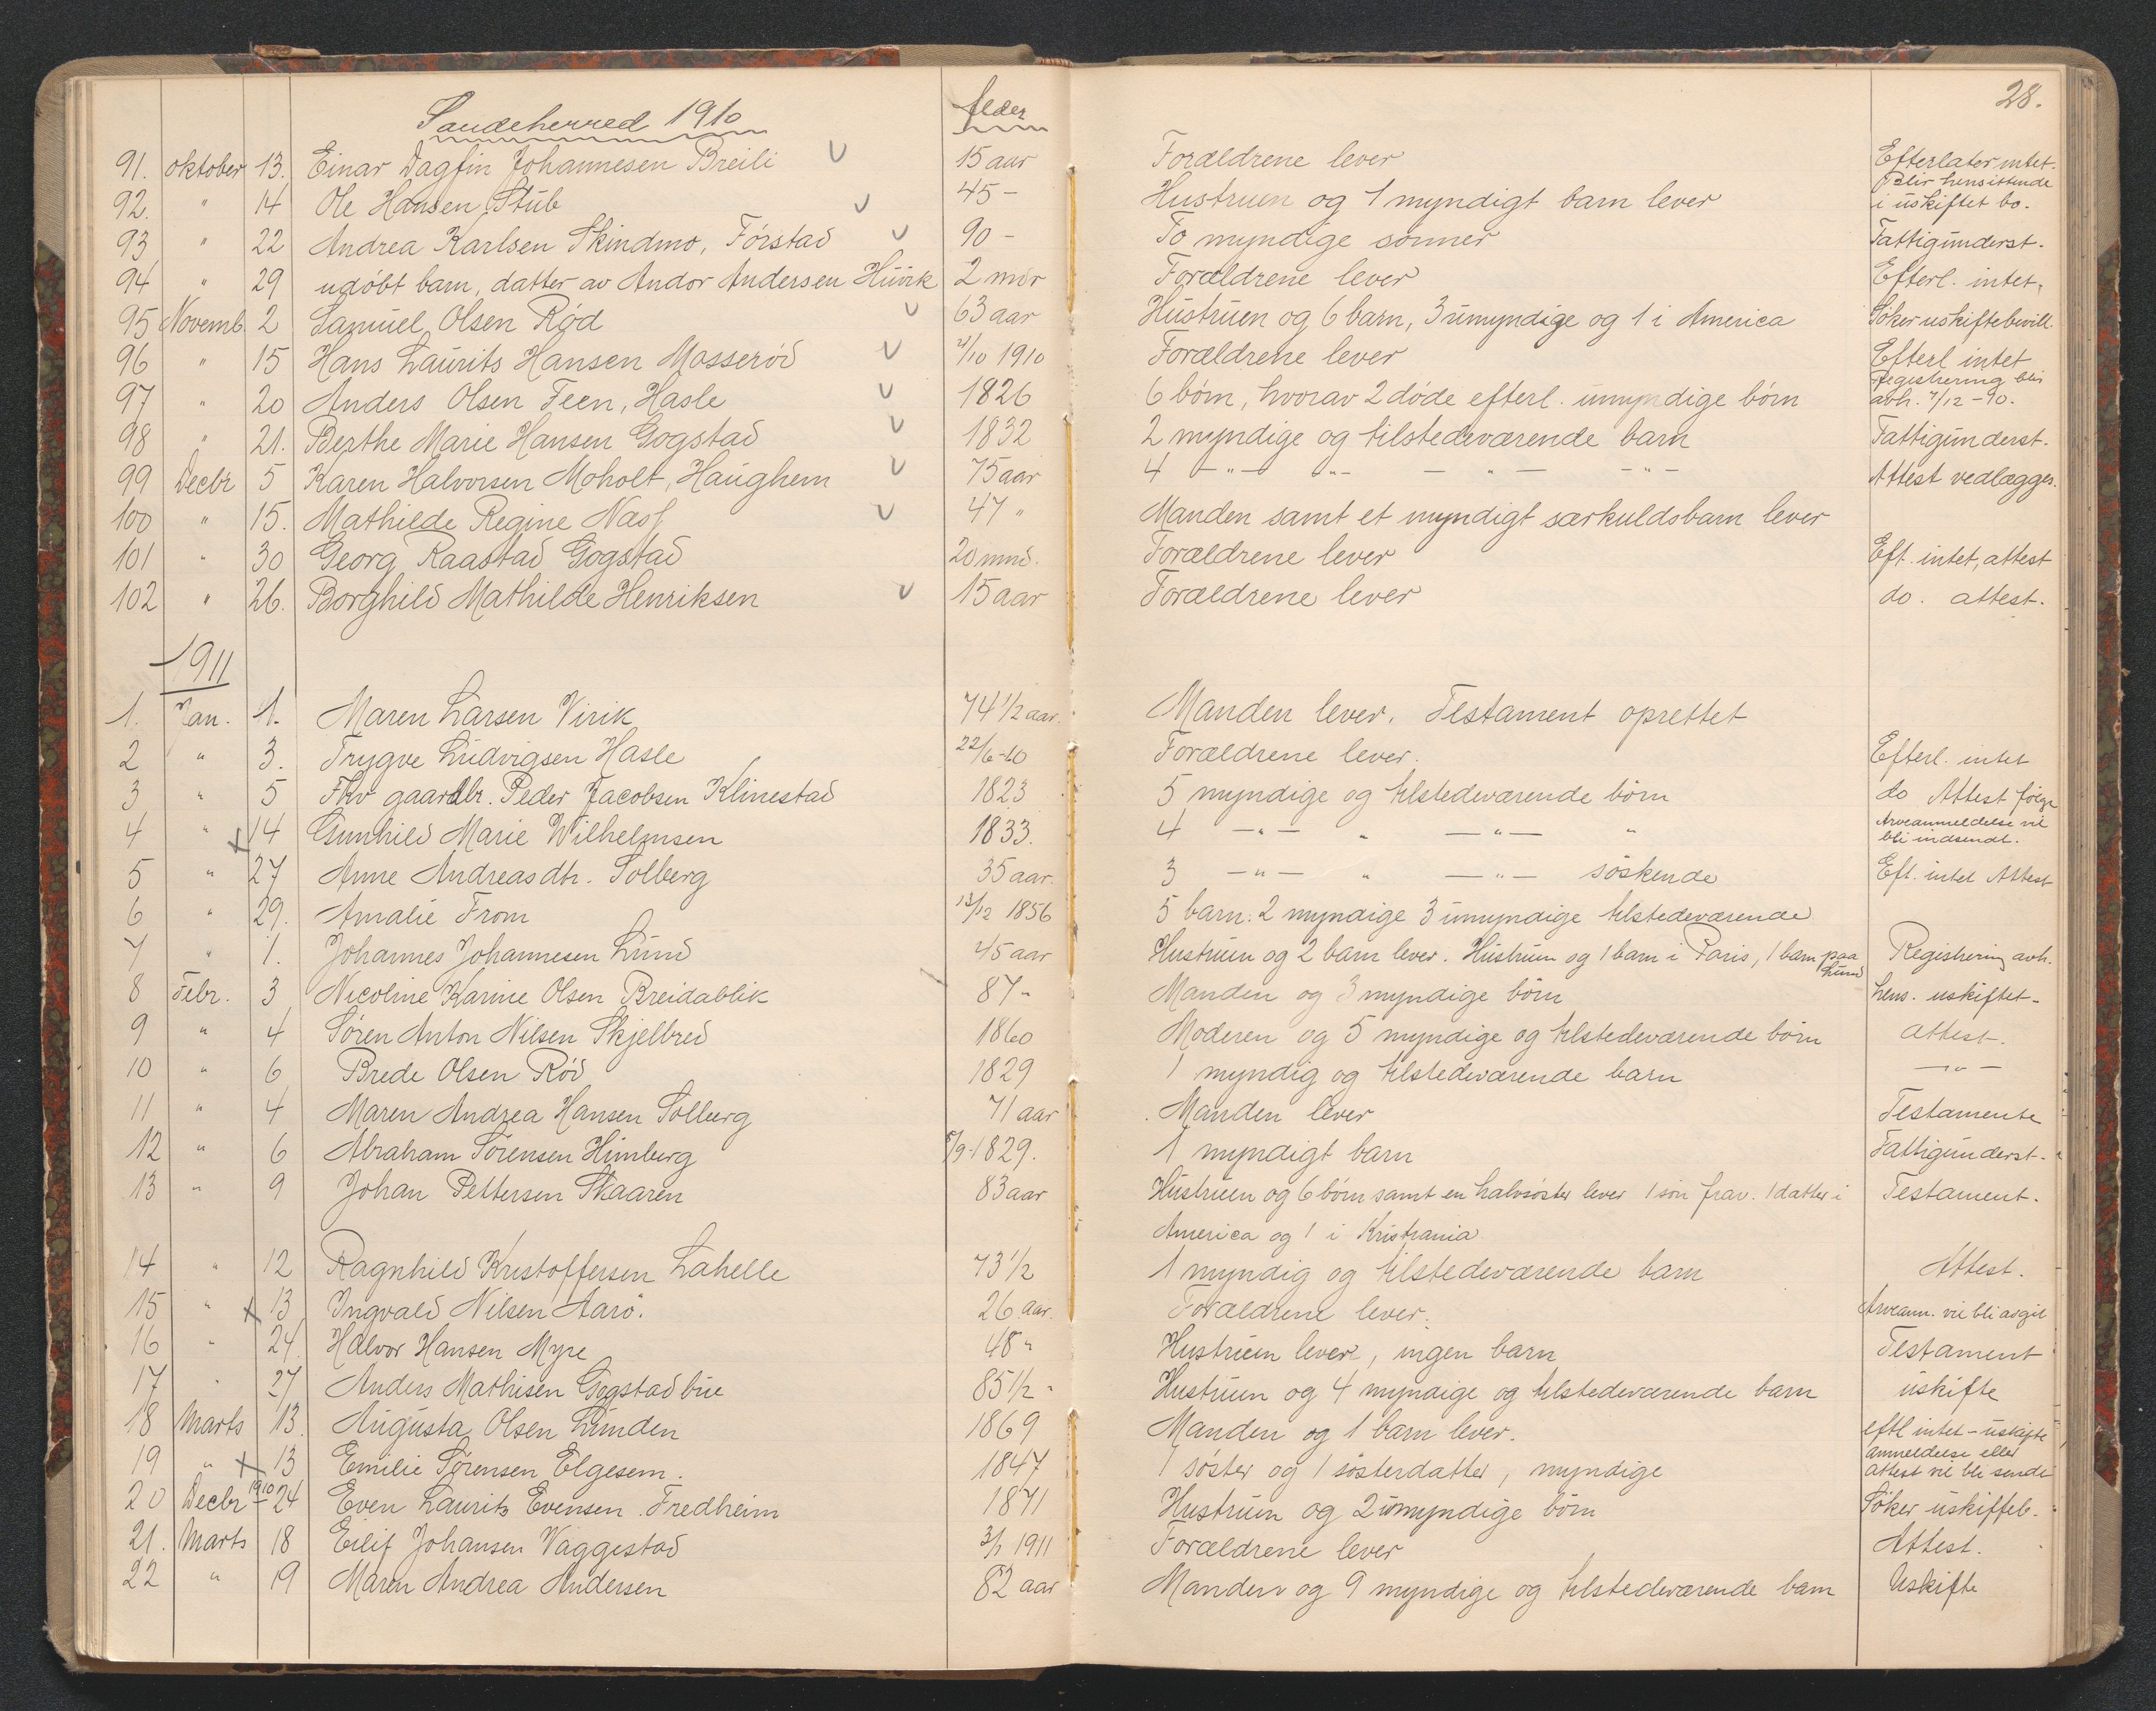 28.
Sandeherred 1910 Alder
91. oktober 13. Einar Dagfin Johannesen Breili 15 aar Forældrene lever Efterlater intet.
92. " 14 Ole Hansen Stub 45 - Hustruen og 1 myndigt barn lever Blir hensittende
i uskiftet bo.
93 " 22 Andrea Karlsen Skindmo, Førstad 90 - To myndige sønner Fattigunderst.
94 " 29 udøbt barn, datter av Andor Andersen Huvik 2 mdr Forældrene lever Efterl. intet.
95 Novemb. 2 Samuel Olsen Rød 63 aar Hustruen og 6 barn, 3 umyndige og 1 i America Søker uskiftebevill.
96 " 15 Hans Laurits Hansen Mosserød /10 1910 Forældrene lever Efterl intet
97 " 20 Anders Olsen Feen, Hasle 1826 6 børn, hvorav 2 døde efterl. umyndige børn Registrering blir
avh. 7/12 - 10.
98 " 21. Berthe Marie Hansen Gogstad 1832 2 myndige og tilstedeværende barn Fattigunderst.
99 Decbr 5 Karen Halvorsen Moholt, Haughem 75 aar 4 - " - - " - - " - - " - Attest vedlægges.
100 " 15. Mathilde Regine Næss 47 " Manden samt et myndigt særkuldsbarn lever
101 " 30 Georg Raastad Gogstad 20 mnd. Forældrene lever Eft. intet, attest
102 " 26. Borghild Mathilde Henriksen 15 aar Forældrene lever do. attest.
1911
1. Jan. 1. Maren Larsen Virik 74 1/2 aar. Manden lever. Testament oprettet
2 " 3. Trygve Ludvigsen Hasle 22/6-10 Forældrene lever. Efterl. intet
3 " 5 Fhv gaardbr. Peder Jacobsen Klinestad 1823 5 myndige og tilstedeværende børn do Attest følge
4 " x 14 Gunhild Marie Wilhelmsen 1833. 4 - " - " - " - " Arveanmeldelse vil
bli indsendt.
5 " 27 Anne Andreasdtr. Solberg 35 aar. 3 - " - " - " - søskende Eft. intet Attest
6 " 29. Amalie From 13/12 1856 5 barn: 2 myndige 3 umyndige tilstedeværende
7 " 1. Johannes Johannesen Lund 45 aar Hustruen og 2 barn lever. Hustruen og 1 barn i Paris, 1 barn paa
Lund Registrering avh.
8 Febr. 3 Nicoline Karine Olsen Breidablik 87 - Manden og 3 myndige børn hens. uskiftet -
9 " 4 Søren Anton Nilsen Skjelbred 1860 Moderen og 5 myndige og tilstedeværende børn attest.
10 " 6 Brede Olsen Rød 1829 1 myndig og tilstedeværende barn - " -
11 " 4 Maren Andrea Hansen Solberg 71 aar Manden lever Testamente
12 " 6 Abraham Sørensen Himberg 5/9-1829. 1 myndigt barn Fattigunderst.
13 " 9 Johan Pettersen Skaaren 83 aar Hustruen og 6 børn samt en halvsøster lever 1 søn frav. 1 datter i Testament.
America og 1 i Kristiania
14 " 12 Ragnhild Kristoffersen Lahelle 73 1/2 1 myndig og tilstedeværende barn Attest.
15 " x 13 Ingvald Nilsen Aarø. 26 aar. Forældrene lever. Arveanm. vil bli avgit
16 " 24 Halvor Hansen Myre 48 " Hustruen lever, ingen barn Testament
17 " 27 Anders Mathisen Gogstad bue 85 1/2 " Hustruen og 4 myndige og tilstedeværende barn uskifte
18 Marts 13. Augusta Olsen Lunden 1869 Manden og 1 barn lever. eftl intet - uskifte
19 " x 13 Emilie Sørensen Elgesem. 1847 1 søster og 1 søsterdatter, myndige anmeldelse eller
attest vil bli sendt
20 Decbr 1910 - 24 Even Laurits Evensen Fredheim 1871 Hustruen og 2 umyndige børn Søker uskifteb.
21. Marts 18 Eilif Johansen Vaggestad 3/1 1911 Forældrene lever Attest.
22 " 19 Maren Andrea Andersen 82 aar Manden og 9 myndige og tilstedeværende barn Uskifte